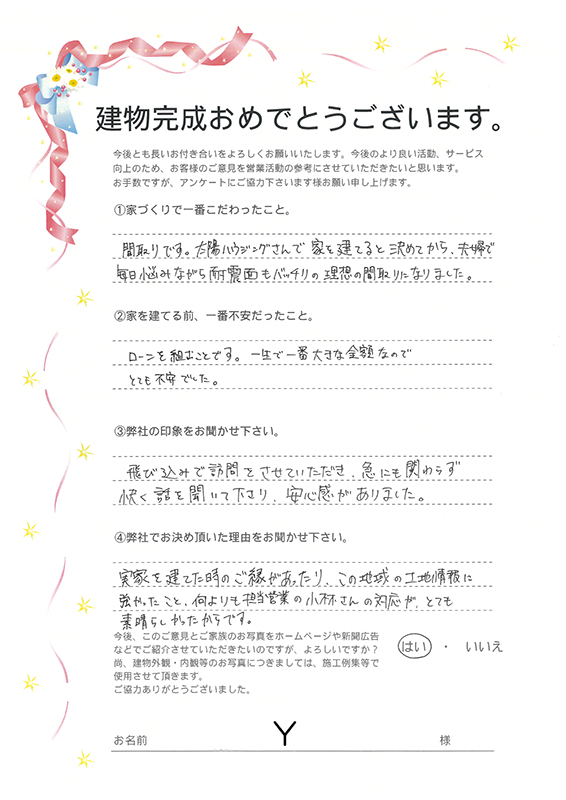 建物完成おめでとうございます。
今後とも長いお付き合いをよろしくお願いいたします。今後のより良い活動、サービス
向上のため、お客様のご意見を営業活動の参考にさせていただきたいと思います。
お手数ですが、アンケートにご協力下さいます様お願い申し上げます。
①家づくりで一番こだわったこと。
間取りです。太陽ハウジングさんで家を建てると決めてから、夫婦で
毎日悩みながら耐震面もバッチリの理想の間取りになりました。
②家を建てる前、一番不安だったこと。
ローンを組むことです。一生で一番大きな金額なので
とても不安でした。
③弊社の印象をお聞かせ下さい。
飛び込みで訪問をさせていただき、急にも関わらず
快く話を聞いて下さり、安心感がありました。
④弊社でお決め頂いた理由をお聞かせ下さい。
実家を建てた時のご縁があったり、この地域の土地情報に
強かったこと、何よりも担当営業の小林さんの対応が、とても
素晴らしかったからです。
今後、このご意見とご家族のお写真をホームページや新聞広告
などでご紹介させていただきたいのですが、よろしいですか？
はい ・ いいえ
尚、建物外観・内観等のお写真につきましては、施工例集等で
使用させて頂きます。
ご協力ありがとうございました。
お名前 Y 様